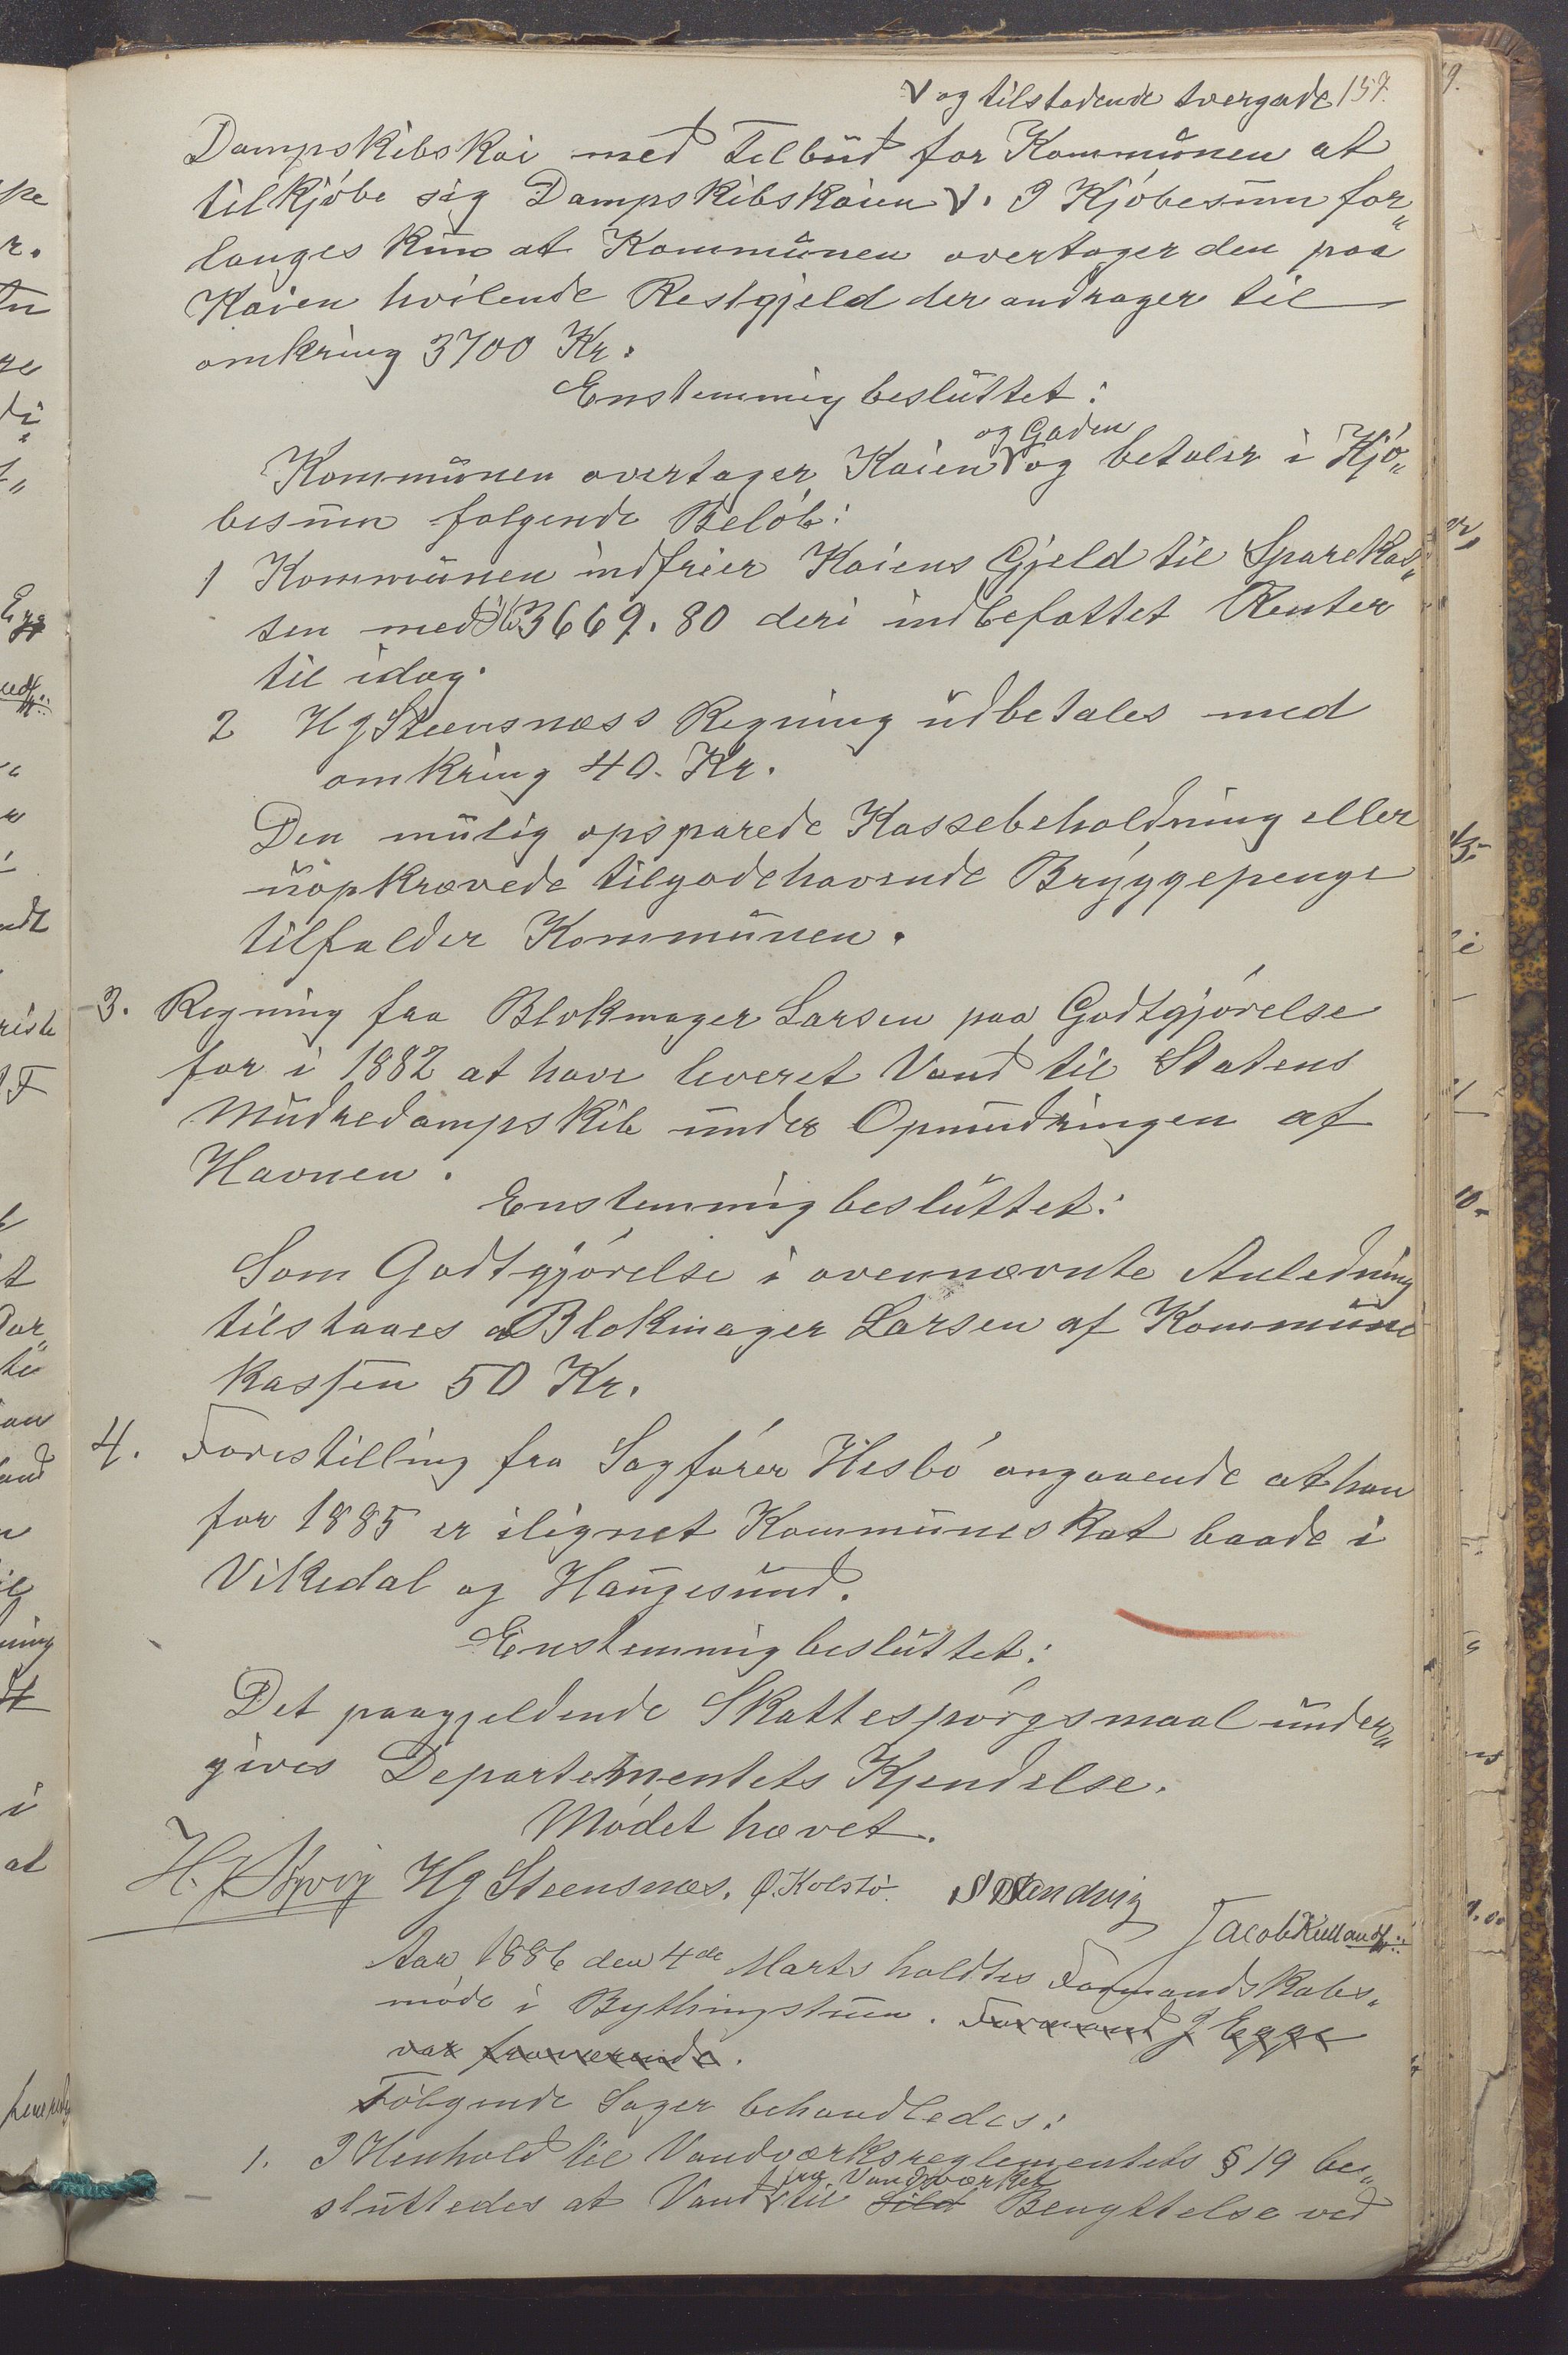 V og tilstødende tvergade 159.
Dampskibskai med Tilbud for Kommunen at
tilkjøbe sig Dampskibskaien V. I Kjøbesum for„
langes kun at Kommunen overtager den paa
Kaien hvilende Restgjeld der andrager til
omkring 3700 Kr.
Enstemmig besluttet:
og Gaden
Kommunen overtager Kaien V og betaler i Kjø„
besum følgende Beløb:
1 Kommunen indfrier Kaiens Gjeld til Sparekas„
sen med 3669.80 deri indbefattet Renter
til idag.
2 HgSteensnæss Regning udbetales med
omkring 40. Kr.
Den mulig opsparede Kassebeholdning eller
uopkrævede tilgodehavende Bryggepenge
tilfalder Kommunen.
3. Regning fra Blokmager Larsen paa Godtgjørelse
for i 1882 at have leveret Vand til Statens
Mudredampskib under Opmudringen af
Havnen.
Enstemmig besluttet:
Som Godtgjørelse i ovennævnte Anledning
tilstaaes Blokmager Larsen af Kommune
kassen 50 Kr.
4. Forestilling fra Sagfører Hesbø angaaende at han
for 1885 er ilignet Kommuneskat baade i
Vikedal og Haugesund.
Enstemmig besluttet:
Det paagjeldende Skattespørgsmaal under„
gives Departementets Kjendelse.
Mødet hævet.
Hg Steensnæs. O. Kolstø. Sandvig
Jacob Kielland
Aar 1886 den 4de Marts holdtes Formandskabs„
møde i Bythingstuen. Formand J Egge
var fraværende.
Følgende Sager behandledes:
1. I Henhold til Vandværksreglementets § 19 be„
fra Vandværket
sluttedes at Vand V til Sild Benyttelse ved